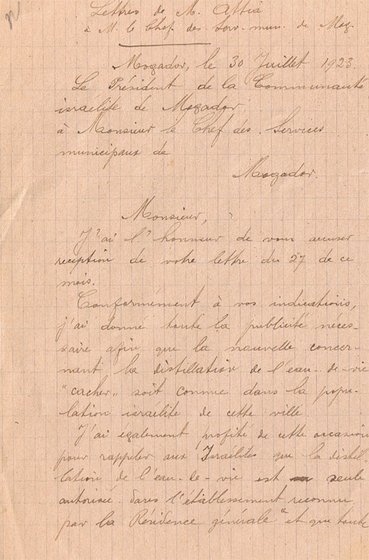 Lettres de M. Attia
à M. le Chef des Serv. mun. de Mog.
Mogador, le 30 Juillet 1923.
Le Président de la Communauté
israélite de Mogador
à Monsieur le Chef des Services
municipaux de
Mogador.
Monsieur,
J'ai l'honneur de vous accuser
réception de votre lettre du 27 de ce
mois.
Conformément à vos indications,
j'ai donné toute la publicité néces-
saire afin que la nouvelle concer-
nant la distillation de l'eau-de-vie
"cacher" soit connue dans la popu-
lation israélite de cette ville
J'ai également profité de cette occasion
pour rappeler aux Israélites que la distil-
lation de l'eau-de-vie est seule
autorisée dans l'établissement reconnu
par la Résidence générale" et que toute